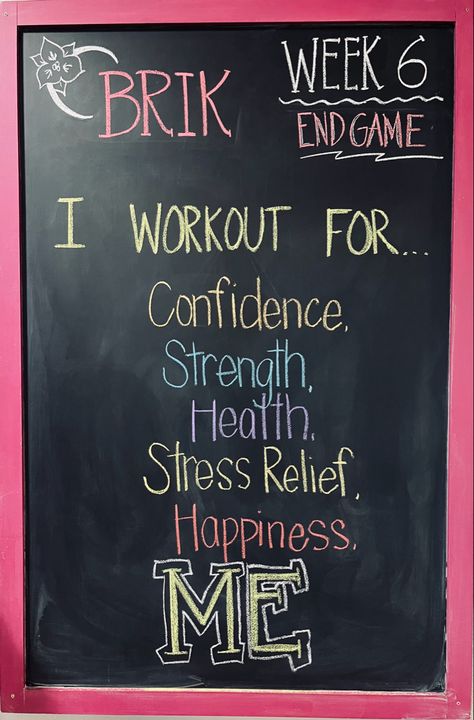 BRIK
WEEK 6
END GAME
I WORKOUT FOR...
Confidence.
Strength.
Health.
Stress Relief.
Happiness.
ME